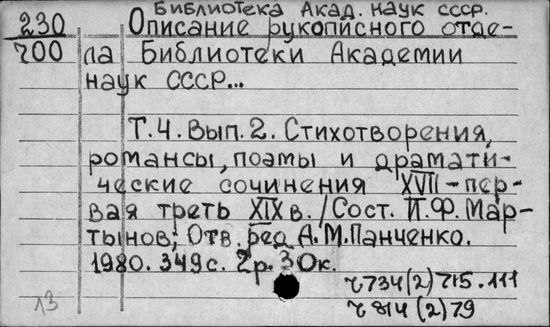 Библиотека Акад. наук СССР.
230
700
Описание рукописного отде-
ла Библиотеки Академии
наук СССР...
Т.4. Вып.2. Стихотворения,
романсы, поэмы и драмати-
ческие сочинения XVII-пер-
вая треть XIX в. /Сост. И.Ф. Мар-
тынов; Отв. ред. А.М. Панченко.
1980. 349 с. 2 р. 30 к.
734(2)715.111
814(2)79
13